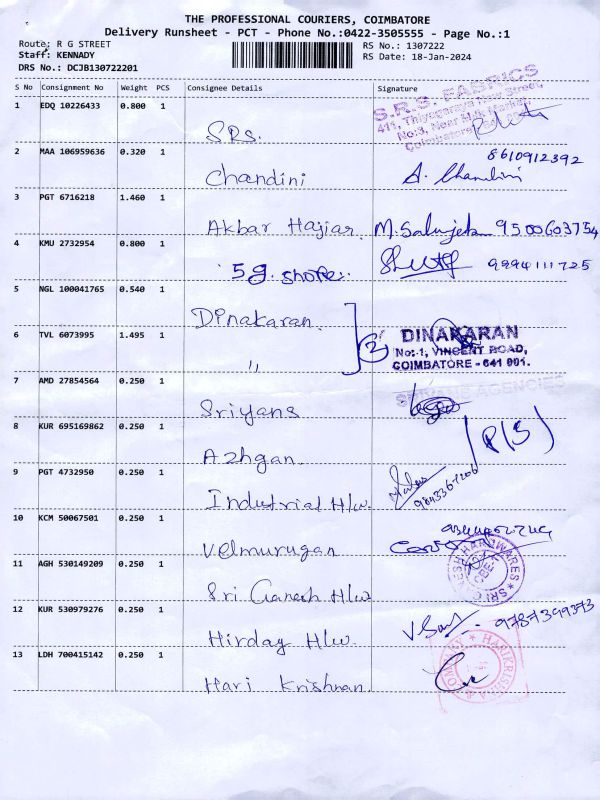 THE PROFESSIONAL COURIERS, COIMBATORE
Delivery Runsheet - PCT - Phone No.:0422-3505555 - Page No.:1
Route: R G STREET
RS No.: 1307222
Staff: KENNADY
RS Date: 18-Jan-2024
DRS No.: DCJB130722201
S No Consignment No Weight PCS Consignee Details Signature
S.R.S. FABRICS
1 EDQ 10226433 0.800 1
411, Thiyagaraya New Street,
No:3, Near Mill Market,
Coimbatore
SRS.
2 MAA 106959636 0.320 1
8610912392
Chandini A. Chandini
3 PGT 6716218 1.460 1
Akbar Hajiar M. 9500603754
4 KMU 2732954 0.800 1
5g. Shope. 9994111725
5 NGL 100041765 0.540 1
Dinakaran
6 TVL 6073995 1.495 1
2 DINAKARAN
No:-1, VINCENT ROAD,
COIMBATORE - 641 001.
"
7 AMD 27854564 0.250 1
SRIYANS AGENCIES
Sriyans
8 KUR 695169862 0.250 1
Azhgan (P/S)
9 PGT 4732950 0.250 1
Industrial H/w.
10 KCM 50067501 0.250 1
Velmurugan
11 AGH 530149209 0.250 1
SRI GANESH HARDWARES
Sri Ganesh H/w
12 KUR 530979276 0.250 1
Hirday H/w. 9787399373
13 LDH 700415142 0.250 1
HARIKRISHNA & COMPANY
Hari Krishnan